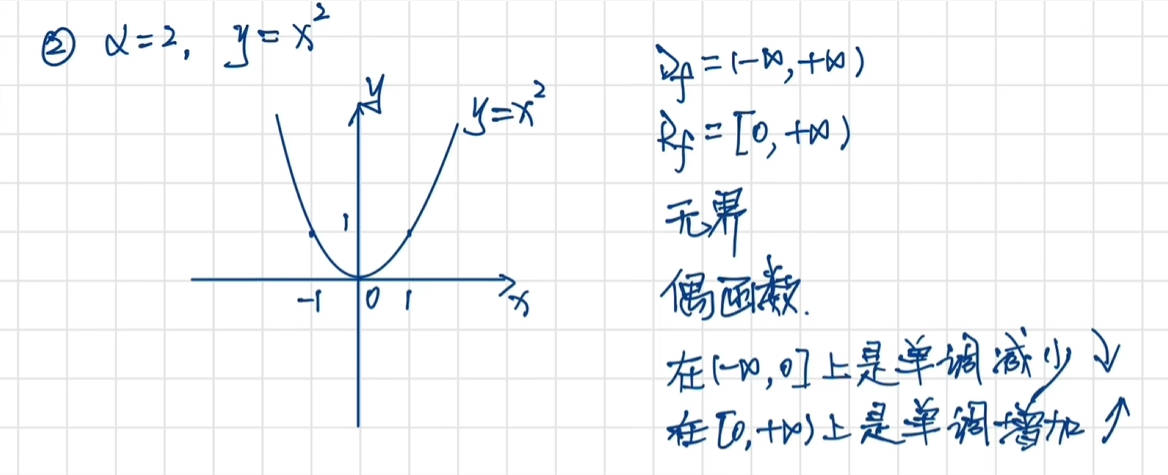 ② α=2, y=x²
y
y=x²
1
-1 0 1 x
D_f=(-∞,+∞)
R_f=[0,+∞)
无界
偶函数.
在(-∞,0]上是单调减少↓
在[0,+∞)上是单调增加↑